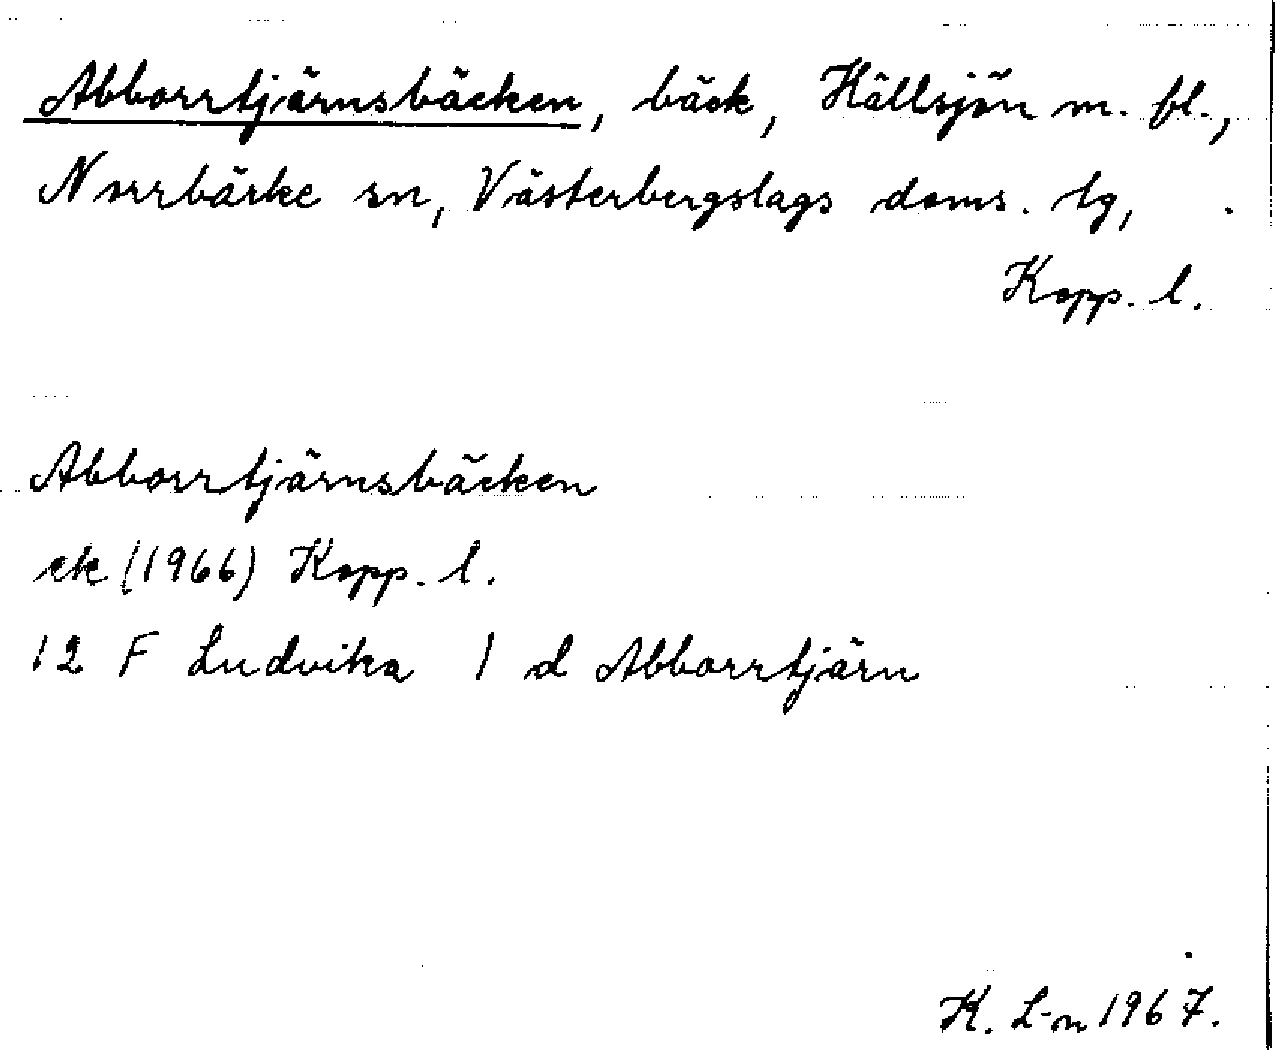 Abborrtjärnsbäcken, bäck, Hällsjön m. fl.,
Norrbärke sn, Västerbergslags doms. tg,
Kopp. l.
Abborrtjärnsbäcken
ek (1966) Kopp. l.
12 F Ludvika 1 d Abborrtjärn
K. L-n 1967.